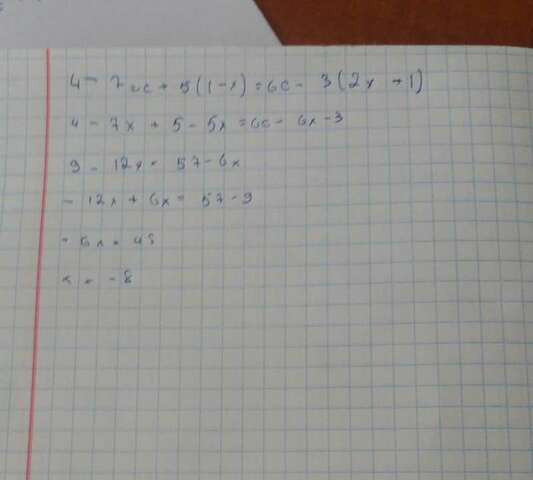 4 - 7x + 5(1-x) = 60 - 3(2x + 1)
4 - 7x + 5 - 5x = 60 - 6x - 3
9 - 12x = 57 - 6x
- 12x + 6x = 57 - 9
- 6x = 48
x = - 8